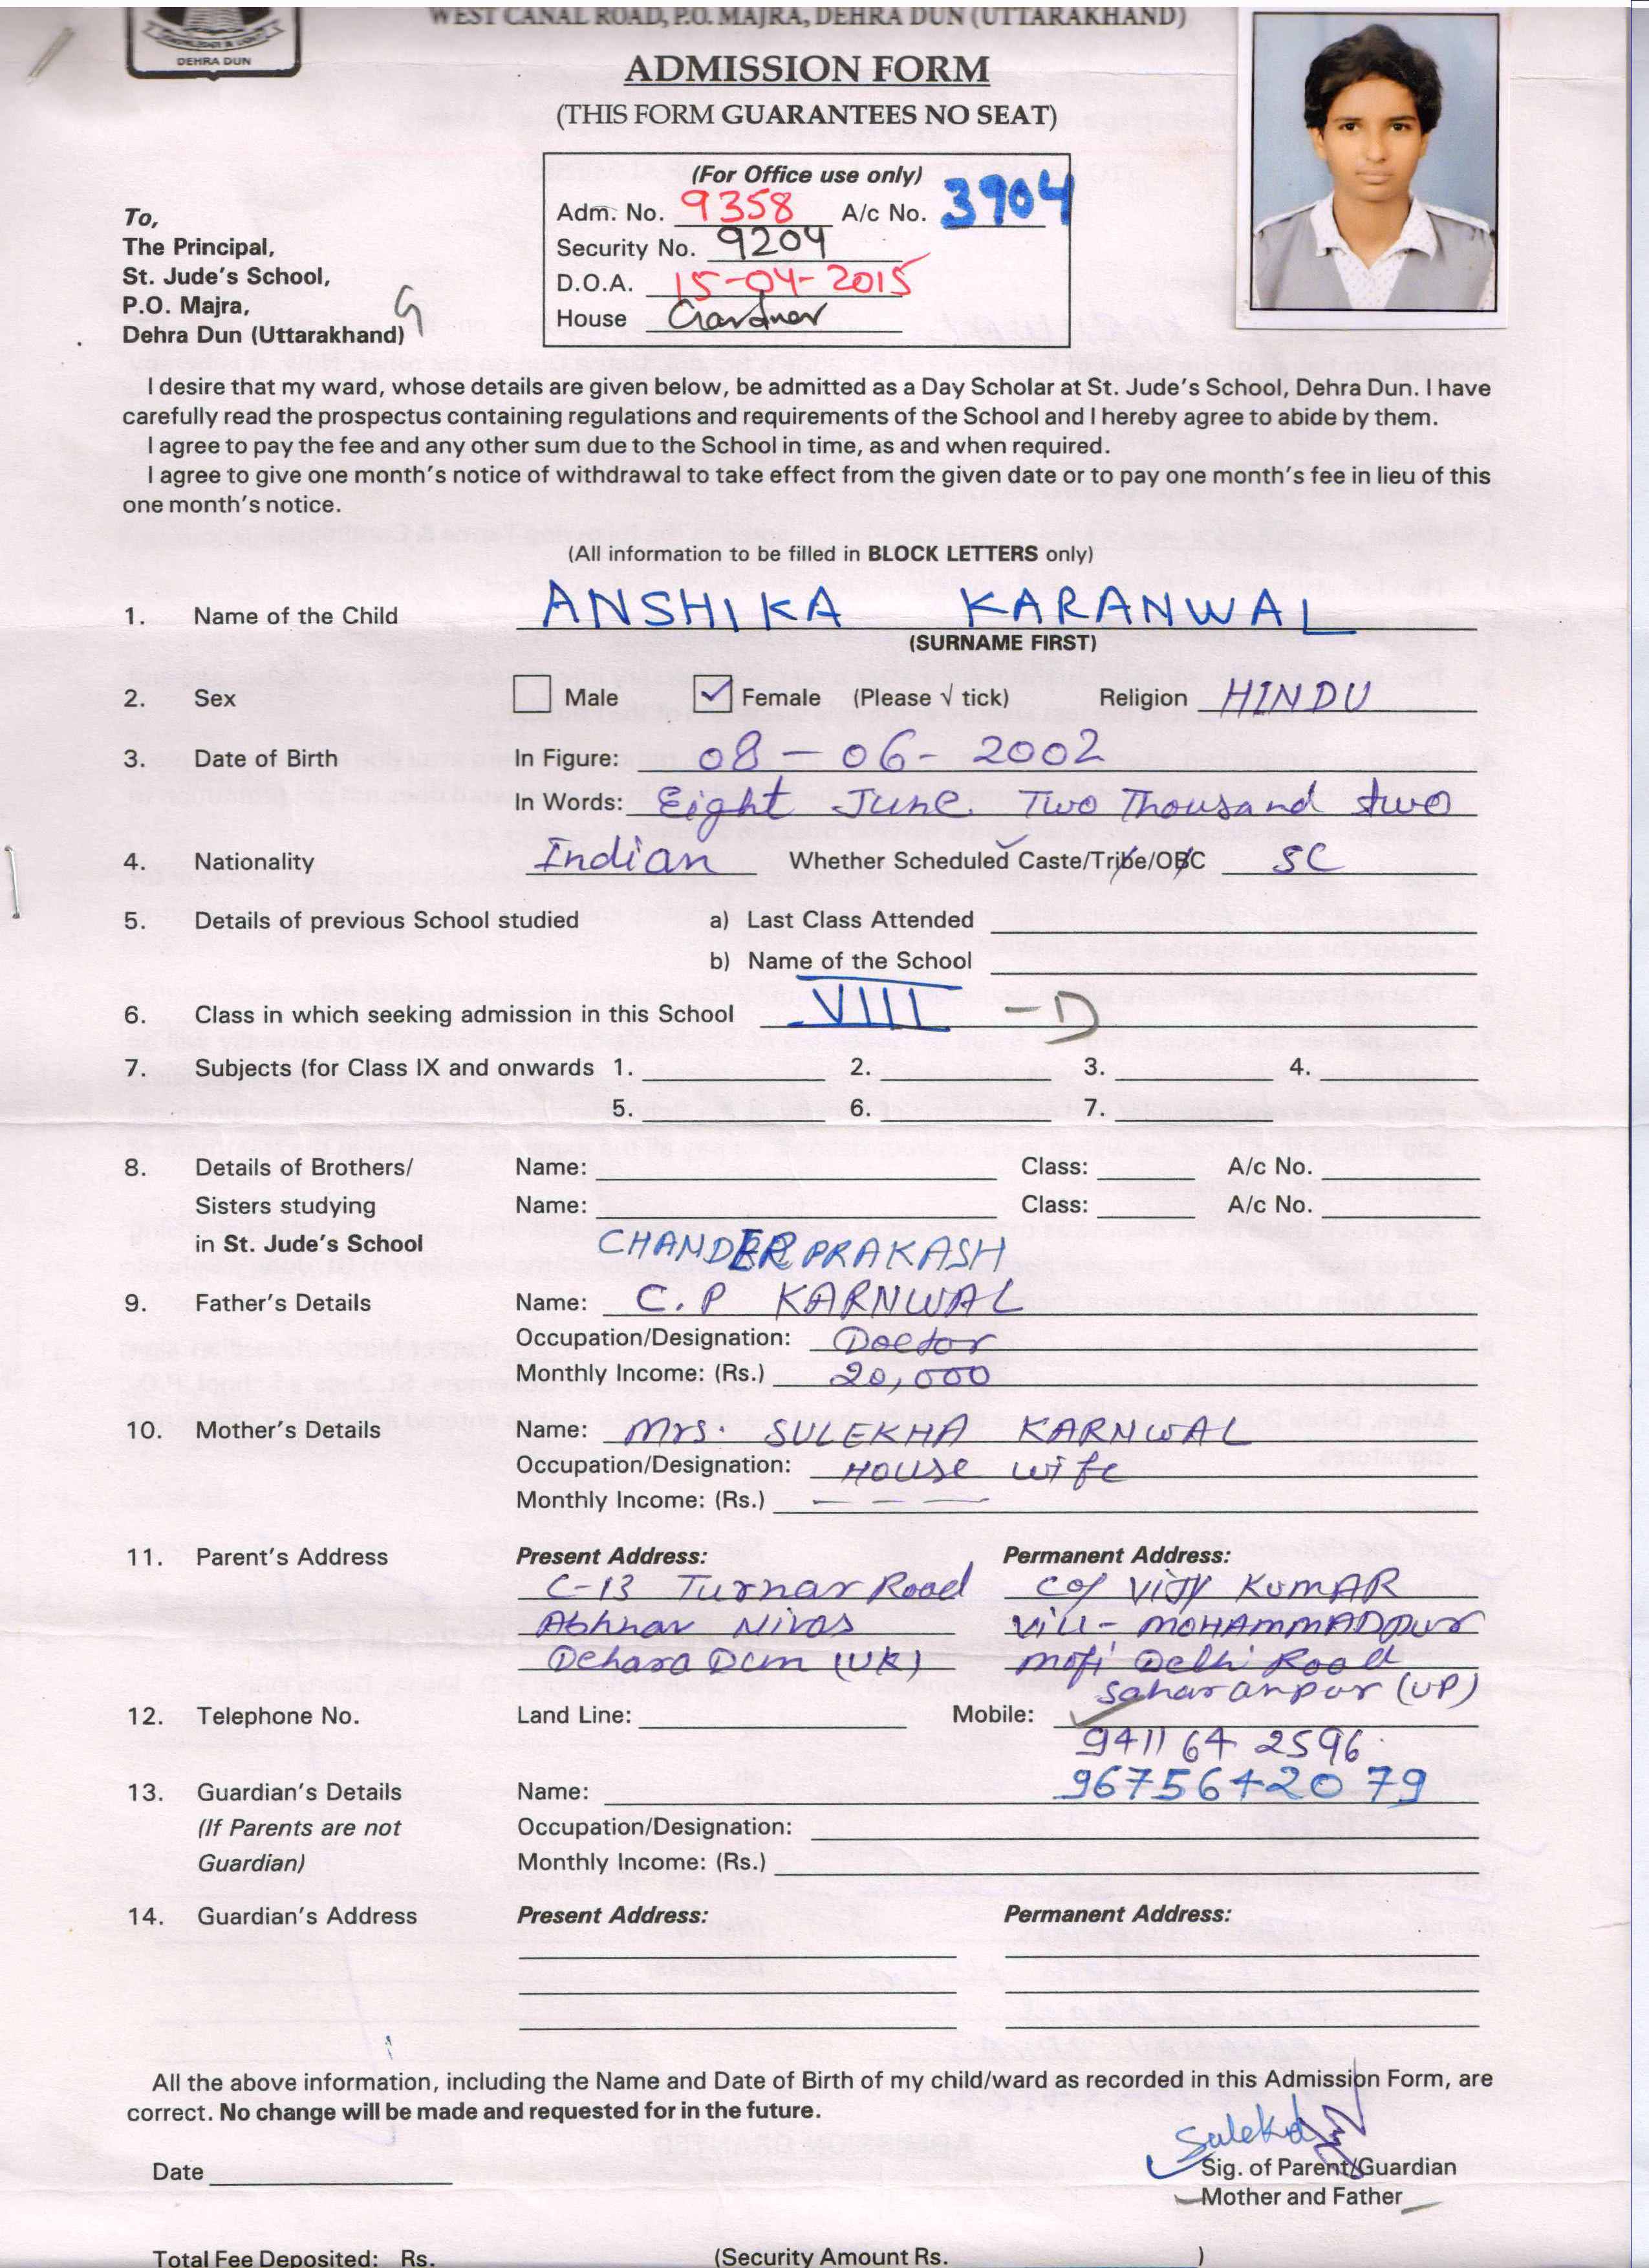 WEST CANAL ROAD, P.O. MAJRA, DEHRA DUN (UTTARAKHAND)
DEHRA DUN
ADMISSION FORM
(THIS FORM GUARANTEES NO SEAT)
(For Office use only)
Adm. No. 9358 A/c No. 3904
Security No. 9204
D.O.A. 15-04-2015
House Gardner
To,
The Principal,
St. Jude's School,
P.O. Majra,
Dehra Dun (Uttarakhand)
G
I desire that my ward, whose details are given below, be admitted as a Day Scholar at St. Jude's School, Dehra Dun. I have
carefully read the prospectus containing regulations and requirements of the School and I hereby agree to abide by them.
I agree to pay the fee and any other sum due to the School in time, as and when required.
I agree to give one month's notice of withdrawal to take effect from the given date or to pay one month's fee in lieu of this
one month's notice.
(All information to be filled in BLOCK LETTERS only)
1. Name of the Child ANSHIKA KARANWAL
(SURNAME FIRST)
2. Sex Male Female (Please √ tick) Religion HINDU
3. Date of Birth In Figure: 08-06-2002
In Words: Eight June Two Thousand two
4. Nationality Indian Whether Scheduled Caste/Tribe/OBC SC
5. Details of previous School studied a) Last Class Attended
b) Name of the School
6. Class in which seeking admission in this School VIII - D
7. Subjects (for Class IX and onwards 1. 2. 3. 4.
5. 6. 7.
8. Details of Brothers/ Name: Class: A/c No.
Sisters studying Name: Class: A/c No.
in St. Jude's School
CHANDER PRAKASH
9. Father's Details Name: C.P KARNWAL
Occupation/Designation: Doctor
Monthly Income: (Rs.) 20,000
10. Mother's Details Name: Mrs. SULEKHA KARNWAL
Occupation/Designation: House wife
Monthly Income: (Rs.) - - -
11. Parent's Address Present Address: Permanent Address:
C-13 Turnar Road C/o VIJY KUMAR
Nivas Vill- MOHAMMADpur
Dehara Dun (UK) Delhi Road
Saharanpur (UP)
12. Telephone No. Land Line: Mobile:
9411 64 2596
9675642079
13. Guardian's Details Name:
(If Parents are not Occupation/Designation:
Guardian) Monthly Income: (Rs.)
14. Guardian's Address Present Address: Permanent Address:
All the above information, including the Name and Date of Birth of my child/ward as recorded in this Admission Form, are
correct. No change will be made and requested for in the future.
Date Sig. of Parent/Guardian
Mother and Father
Total Fee Deposited: Rs. (Security Amount Rs. )